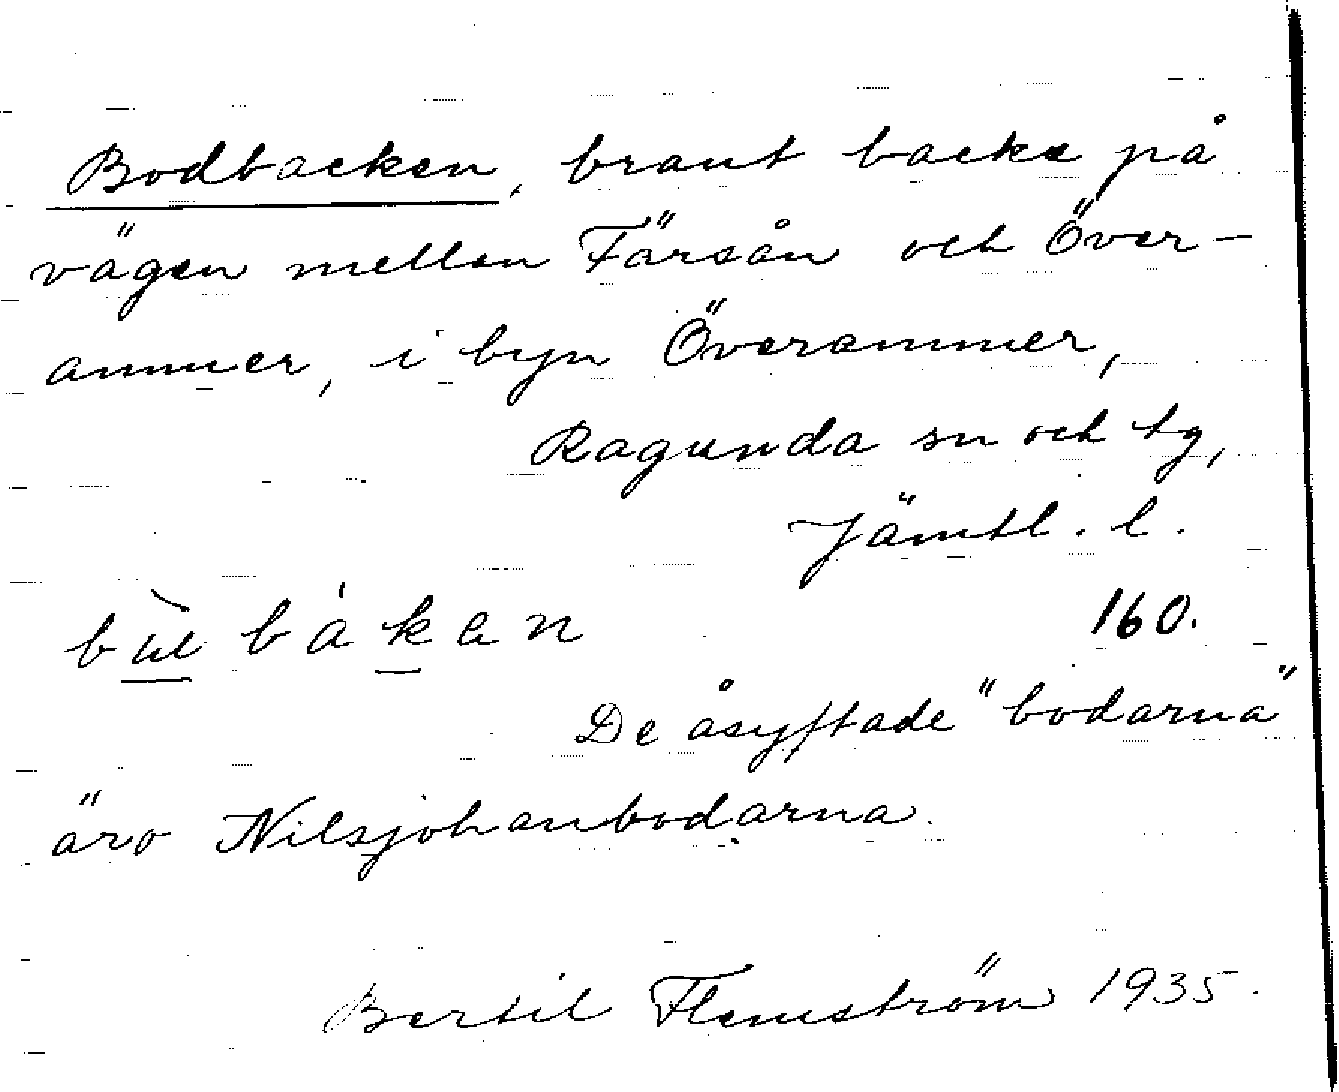 Bodbacken, brant backe på
vägen mellan Färsån och Över-
ammer, i byn Överammer,
Ragunda sn och tg,
Jämtl. l.
160.
De åsyftade "bodarna"
äro Nilsjohanbodarna.
Bertil Flemström 1935.